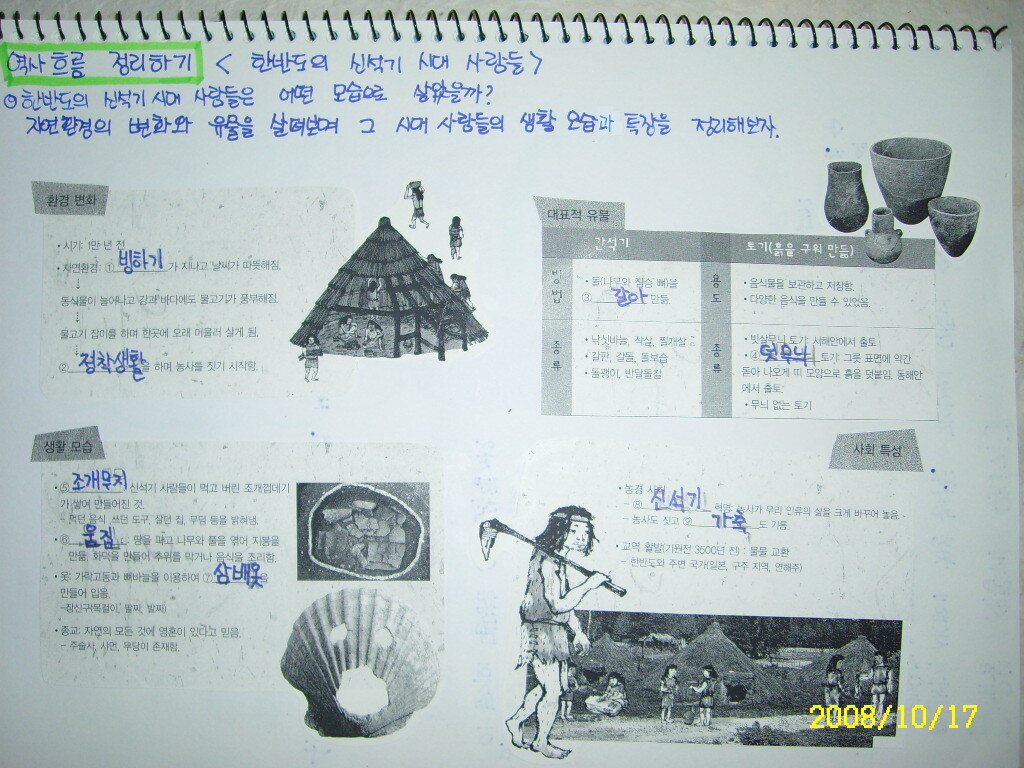 역사 흐름 정리하기 < 한반도의 신석기 시대 사람들 >
⊙ 한반도의 신석기 시대 사람들은 어떤 모습으로 살았을까?
자연환경의 변화와 유물을 살펴보며 그 시대 사람들의 생활 모습과 특징을 정리해보자.
환경 변화
• 시기: 1만 년 전
• 자연환경: ① 빙하기 가 지나고 날씨가 따뜻해짐.
↓
동식물이 늘어나고 강과 바다에 물고기가 풍부해짐.
↓
물고기 잡이를 하며 한곳에 오래 머물러 살게 됨.
↓
② 정착생활 을 하며 농사를 짓기 시작함.
대표적 유물
간석기
토기(흙을 구워 만듦)
방법
• 돌(나무와 짐승 뼈)을
③ 갈아 만듦.
용도
• 음식물을 보관하고 저장함.
• 다양한 음식을 만들 수 있었음.
종류
• 낚싯바늘, 작살, 찔개살
• 갈판, 갈돌, 돌보습
• 돌괭이, 반달돌칼
종류
• 빗살무늬 토기: 서해안에서 출토
• ④ 덧무늬 토기: 그릇 표면에 약간
돌아 나오게 띠 모양으로 흙을 덧붙임. 동해안
에서 출토.
• 무늬 없는 토기
생활 모습
• ⑤ 조개무지 신석기 사람들이 먹고 버린 조개껍데기
가 쌓여 만들어진 것.
– 먹던 음식, 쓰던 도구, 살던 집, 무덤 등을 밝혀냄.
• ⑥ 움집 : 땅을 파고 나무와 풀을 엮어 지붕을
만듦, 화덕을 만들어 추위를 막거나 음식을 조리함.
• 옷: 가락고동과 뼈바늘을 이용하여 ⑦ 삼베옷 을
만들어 입음.
–장신구(목걸이, 팔찌, 발찌)
• 종교: 자연의 모든 것에 영혼이 있다고 믿음.
– 주술사, 샤먼, 무당이 존재함.
사회 특성
• 농경 사회
– ⑧ 신석기 혁명: 농사가 우리 인류의 삶을 크게 바꾸어 놓음.
– 농사도 짓고 ⑨ 가축 도 기름.
• 교역 활발(기원전 3500년 전) : 물물 교환
– 한반도와 주변 국가(일본, 구주 지역, 연해주)
2008/10/17